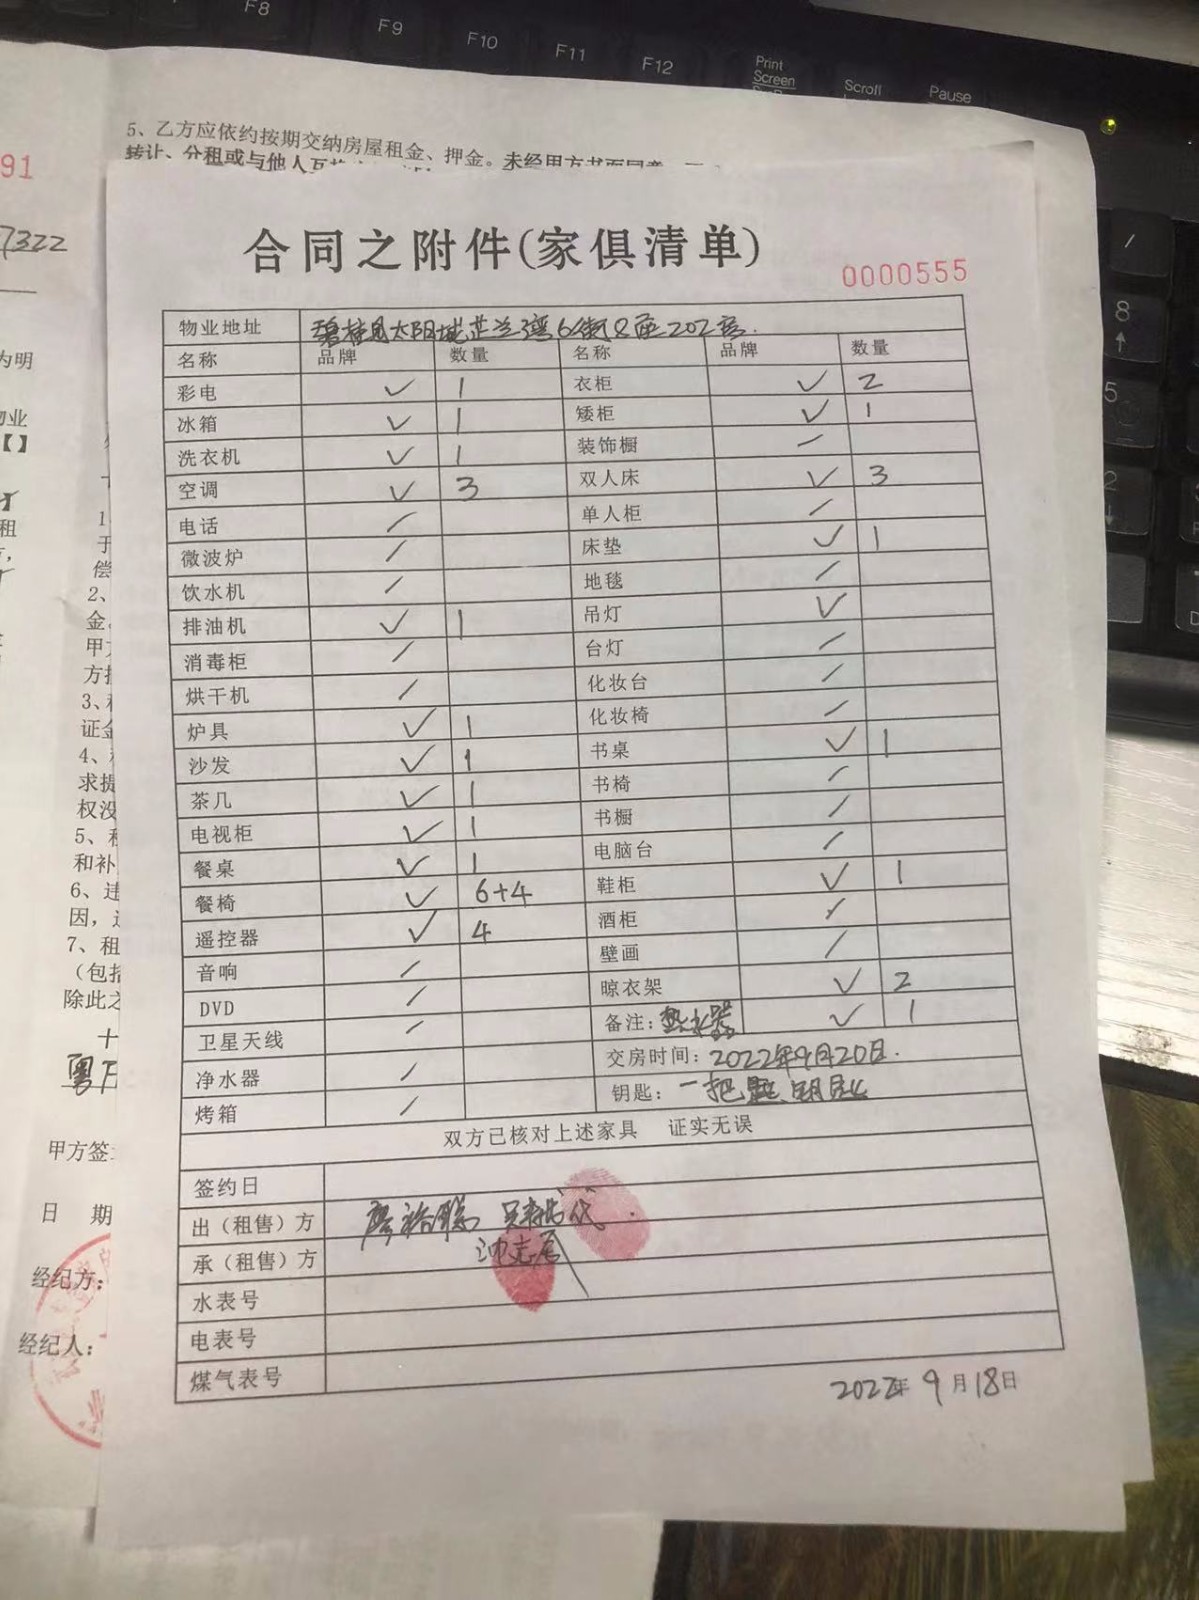 F8
F9
F10
F11
F12
Print
Screen
Scroll
Pause
/
8
5
2
5、乙方应依约按期交纳房屋租金、押金。未经甲方书面同意
转让、分租或与他人互
91
7322
为明
物业
【】
租
1
于
偿
2、
金
甲方
方
3、
证金
4、
求提
权没
5、租
和补
6、违
因，
7、租
（包括
除此之
十
甲方签
日 期
经纪方：
经纪人：
合同之附件(家俱清单)
0000555
物业地址 碧桂园太阳城芷兰湾6街8座202室.
名称 品牌 数量 名称 品牌 数量
彩电 ✓ 1 衣柜 ✓ 2
冰箱 ✓ 1 矮柜 ✓ 1
洗衣机 ✓ 1 装饰橱 /
空调 ✓ 3 双人床 ✓ 3
电话 / 单人柜 /
微波炉 / 床垫 ✓ 1
饮水机 / 地毯 /
排油机 ✓ 1 吊灯 ✓
消毒柜 / 台灯 /
烘干机 / 化妆台 /
炉具 ✓ 1 化妆椅 /
沙发 ✓ 1 书桌 ✓ 1
茶几 ✓ 1 书椅 /
电视柜 ✓ 1 书橱 /
餐桌 ✓ 1 电脑台 /
餐椅 ✓ 6+4 鞋柜 ✓ 1
遥控器 ✓ 4 酒柜 /
音响 / 壁画 /
DVD / 晾衣架 ✓ 2
卫星天线 / 备注：热水器 ✓ 1
净水器 / 交房时间：2022年9月20日.
烤箱 / 钥匙：一把
双方已核对上述家具 证实无误
签约日
出（租售）方 廖裕聪 代
承（租售）方
水表号
电表号
煤气表号
2022年 9月18日